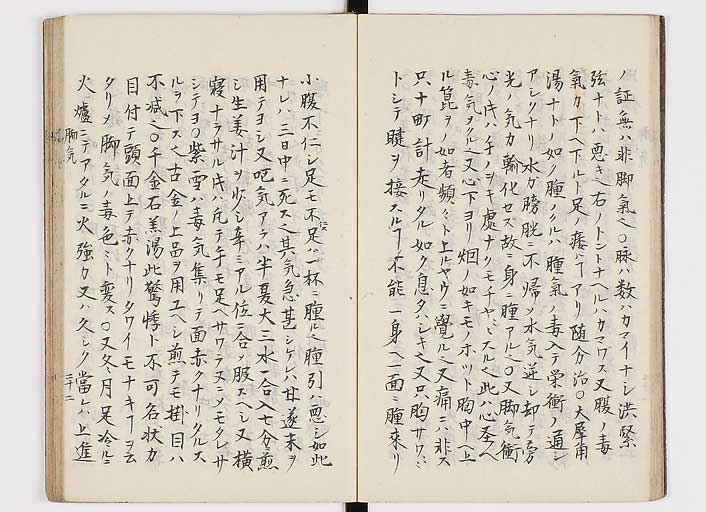 ノ証無ハ非脚氣也〇脉ハ数ハカマイナシ洪緊
弦ナトハ悪キ也右ノトントナヘルハカマワス又腹ノ毒
氣カ下ヘ下ルト足ノ痿ルヿアリ随分治〇大犀角
湯ナトノ如ク腫ノクルハ腫氣ノ毒入テ栄衛ノ通シ
アシクナリ水カ膀胱ニ不帰ソ水気逆シ却テ
光ノ気カ輸化セズ故ニ身ニ腫アル也〇又脚気衝
心ノ時ハ手ノヲキ處ナクモチヤ〳〵スル也此ハ心 ヘ
毒気ヲクル也又心下ヨリ烟ノ如キモノホット胸中ヘ上
ル箟ヲノ如者頻ミト上ルヤウニ覺ル也又痛ニハ非ス
只十町計走リタル如ク息タヽシキ也又只胸サワ〳〵
トシテ睫ヲ接スルヿ不能一身ヘ一面ニ腫来リ
小腹不仁シ足モ不足ハ一杯ニ腫ル也腫引ハ悪シ如此
ナレハ三日中ニ死ス也其気急甚シケレハ甘遂末ヲ
用テヨシ又吃気アラハ半夏大三水一合入七分煎
シ生姜汁ヲ少シ辛ミアル位ニ合ソ服スヘシ又横
寝ナラサル時ハ凢テ手モ足ヘサワテヌニメモクレサ
シテヨ〇紫雪ハ毒気集リテ面赤クナリタルス
ルヲ下ス也古金ノ上品ヲ用ユヘシ煎テモ掛目ハ
不减也〇千金石羔湯此驚悸ト不可名状カ
目付テ頭面上テ赤クナリタワイモナキヿヲ云
タリメ脚気ノ毒色ミト変ス〇又冬月足冷ルニ
火爐ニテアタルニ火強カ又ハ久シク當レハ上進
脚気
二十二